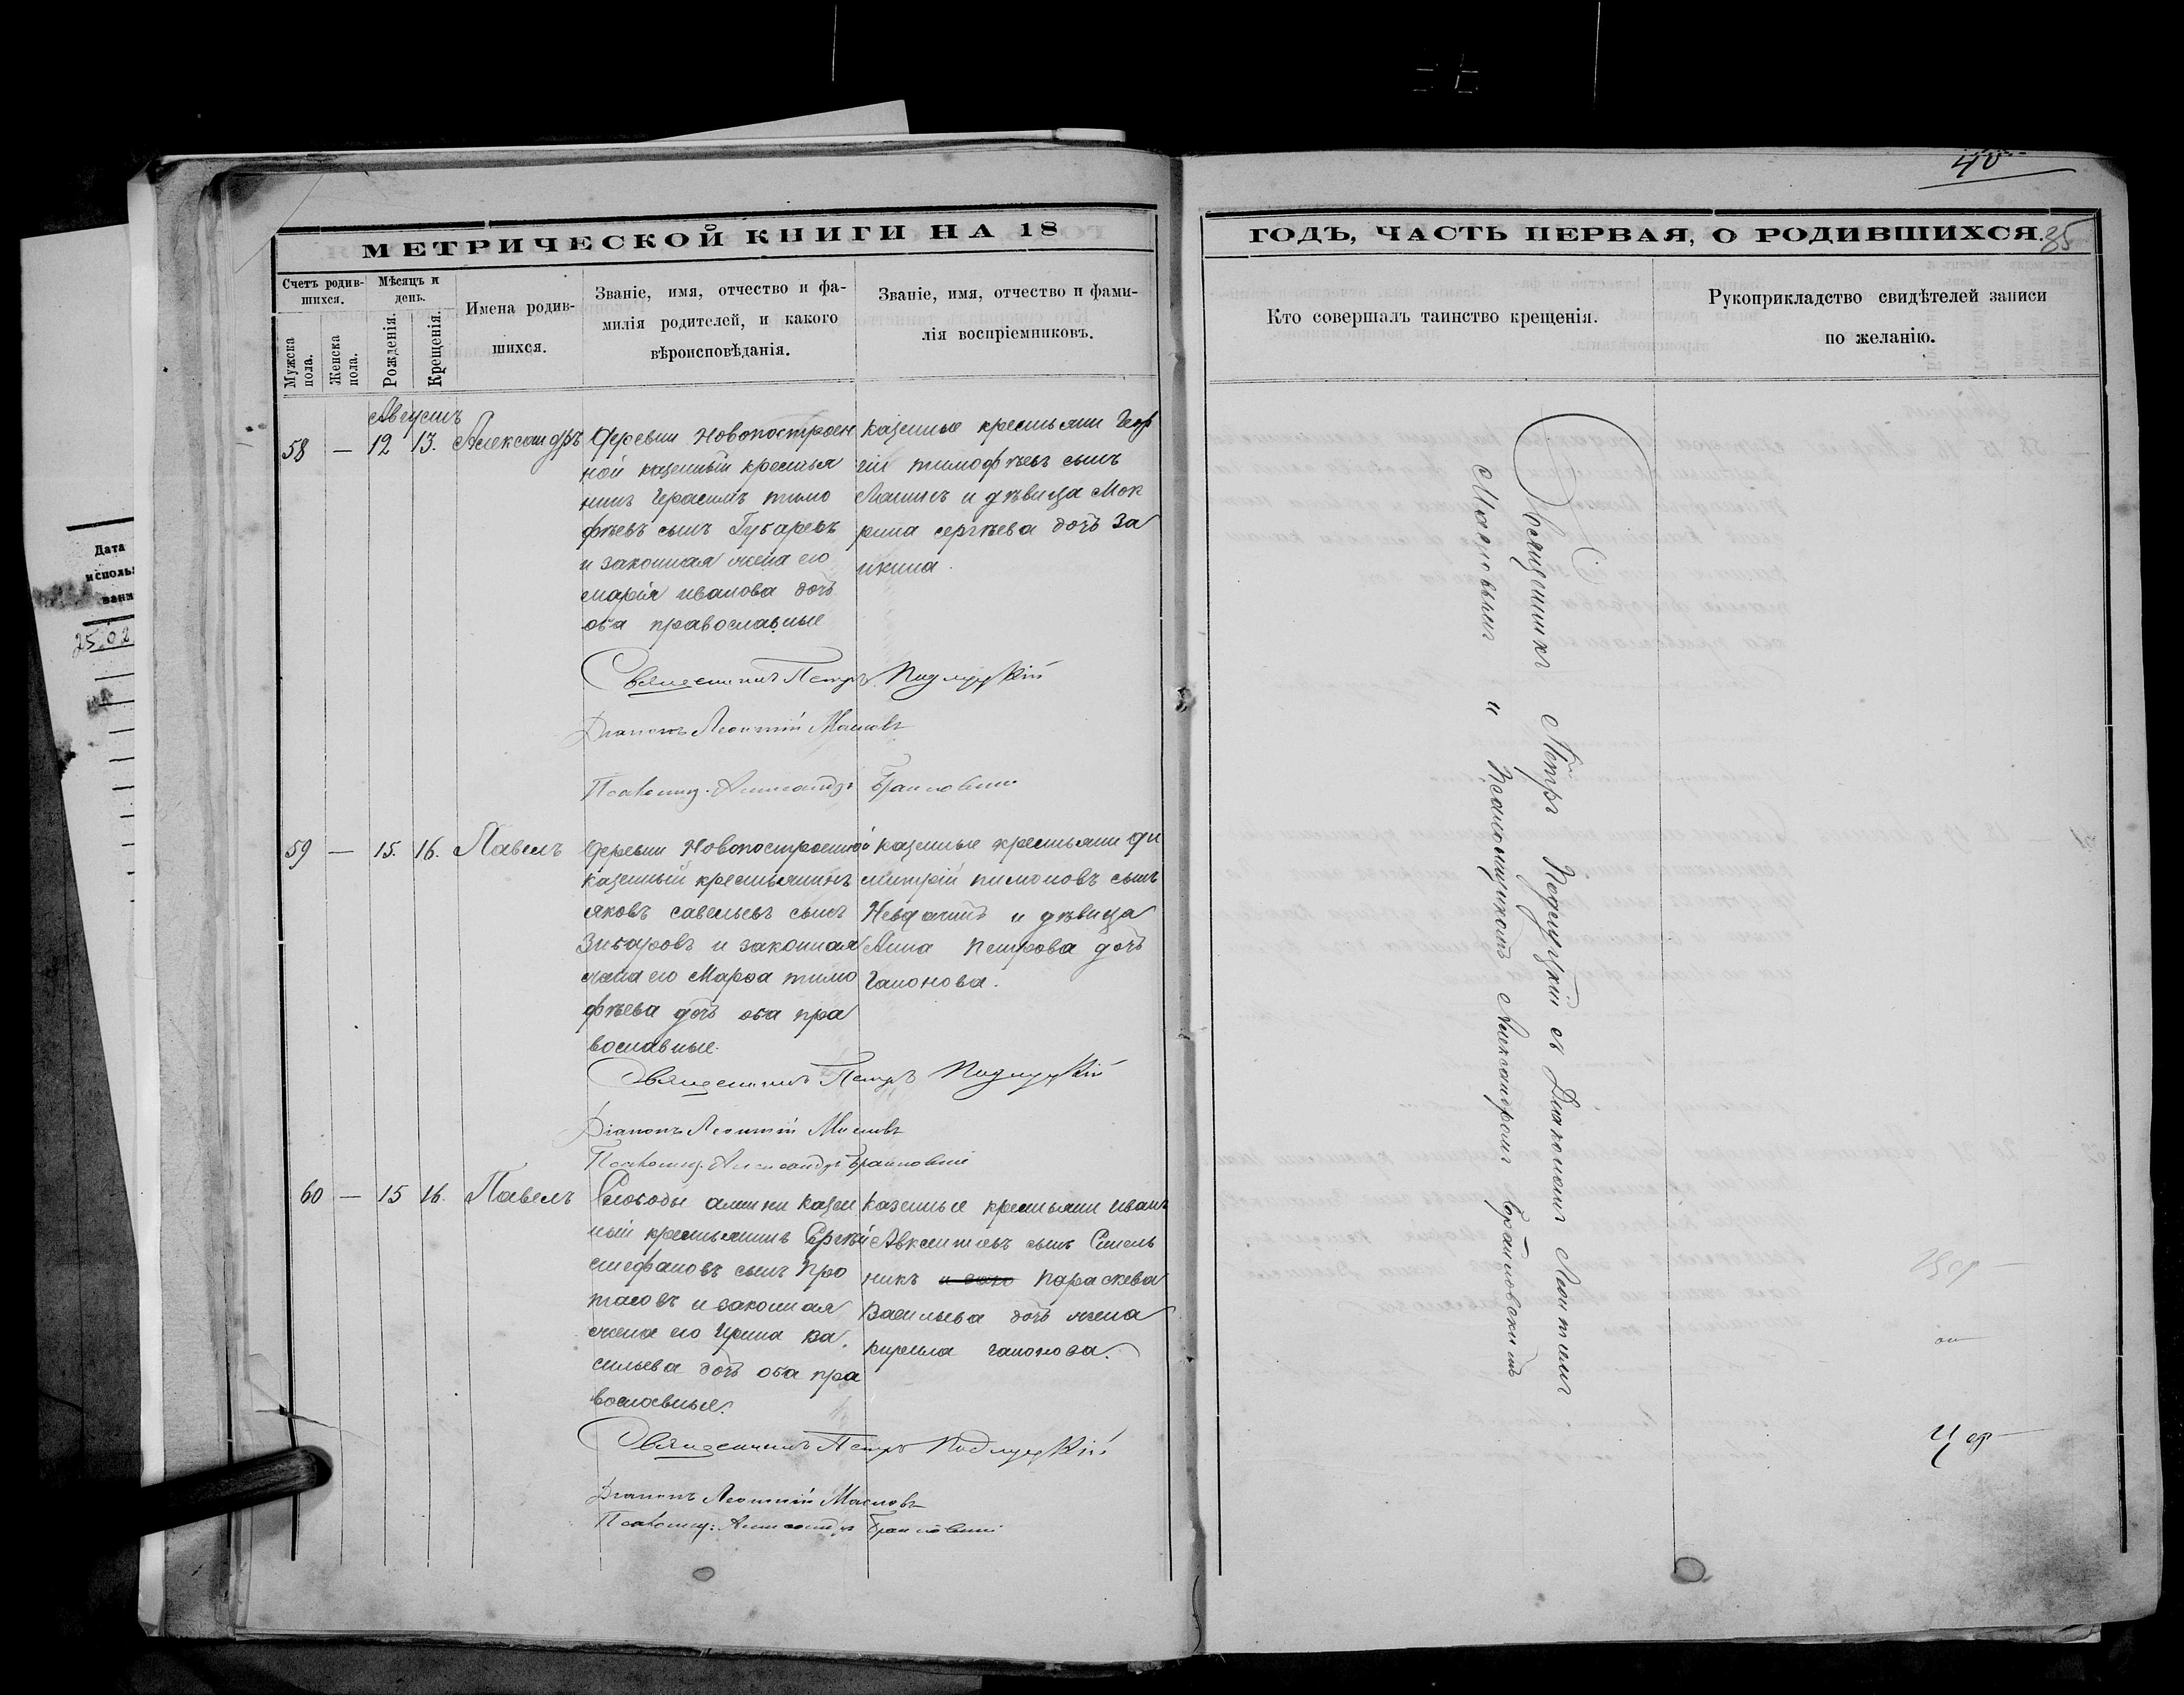 40
МЕТРИЧЕСКОЙ КНИГИ НА 18
ГОДЪ, ЧАСТЬ ПЕРВАЯ, О РОДИВШИХСЯ.
85
Счетъ родив-
шихся.
Мужска
пола.
Женска
пола.
Мѣсяцъ и
день.
Рожденія.
Крещенія.
Имена родив-
шихся.
Званіе, имя, отчество и фа-
милія родителей, и какого
вѣроисповѣданія.
Званіе, имя, отчество и фами-
лія воспріемниковъ.
Кто совершалъ таинство крещенія.
Рукоприкладство свидѣтелей записи
по желанію.
Августъ
58 — 12 13. Александръ
Деревни Новопостроен
ной казенный крестья
нинъ Герасимъ тимо
фѣевъ сынъ Губаревъ
и законная жена его
марія иванова дочь
оба православные
казенные крестьяне Геор
гій тимофѣевъ сынъ
и дѣвица Мок
рина сергѣева дочь За
икина.
Священникъ Петръ Подлуцкій
Діаконъ Леонтій Масловъ
Псаломщ. Александръ Браиловскій
59 — 15. 16. Павелъ
Деревни Новопостроенной
казенный крестьянинъ
яковъ савельевъ сынъ
Зибаровъ и законная
жена его Марѳа тимо
фѣева дочь оба пра
вославные.
казенные крестьяне Ди
митрій пимоновъ сынъ
и дѣвица
Анна петрова дочь
Гапонова.
Священникъ Петръ Подлуцкій
Діаконъ Леонтій Масловъ
Псаломщ. Александръ Браиловскій
60 — 15 16. Павелъ
Слободы казен
ный крестьянинъ Сергѣй
стефановъ сынъ Про
тасовъ и законная
жена его Ирина ва
сильева дочь оба пра
вославные.
казенные крестьяне иванъ
Авксентіевъ сынъ Синель
никъ параскева
Васильева дочь жена
кирилла гапонова.
Священникъ Петръ Подлуцкій
Діаконъ Леонтій Масловъ
Псаломщ: Александръ Браиловскій
Священникъ Петръ Подлуцкій съ Діакономъ Леонтіемъ
Масловымъ и Псаломщикомъ Александромъ Браиловскимъ
Дата
исполь
вани
25.02